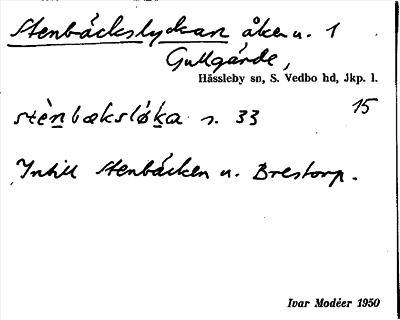 Stenbäckslyckan åker u. 1
Gullgärde,
Hässleby sn, S. Vedbo hd, Jkp. l.
stènbækslỳka s. 33 15
Intill Stenbäcken u. Brestorp.
Ivar Modéer 1950